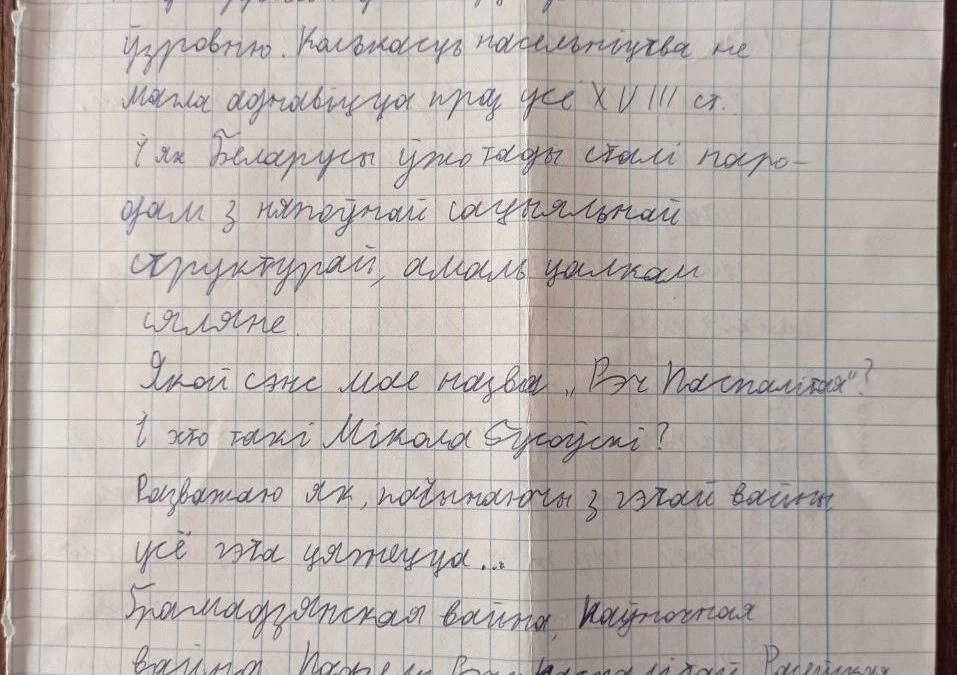 ўзроўню. Колькасць насельніцтва не
магла аднавіцца праз усё XVIII ст.
І як Беларусы ўжо тады сталі наро-
дам з няпоўнай сацыяльнай
структурай, амаль цалкам
сяляне.
Якой сэнс мае назва „Рэч Паспалітая"?
І хто такі Мікола Гусоўскі?
Разважаю як, пачынаючы з гэтай вайны
усё гэта цяжецца...
Грамадзянская вайна, Паўночная
вайна,